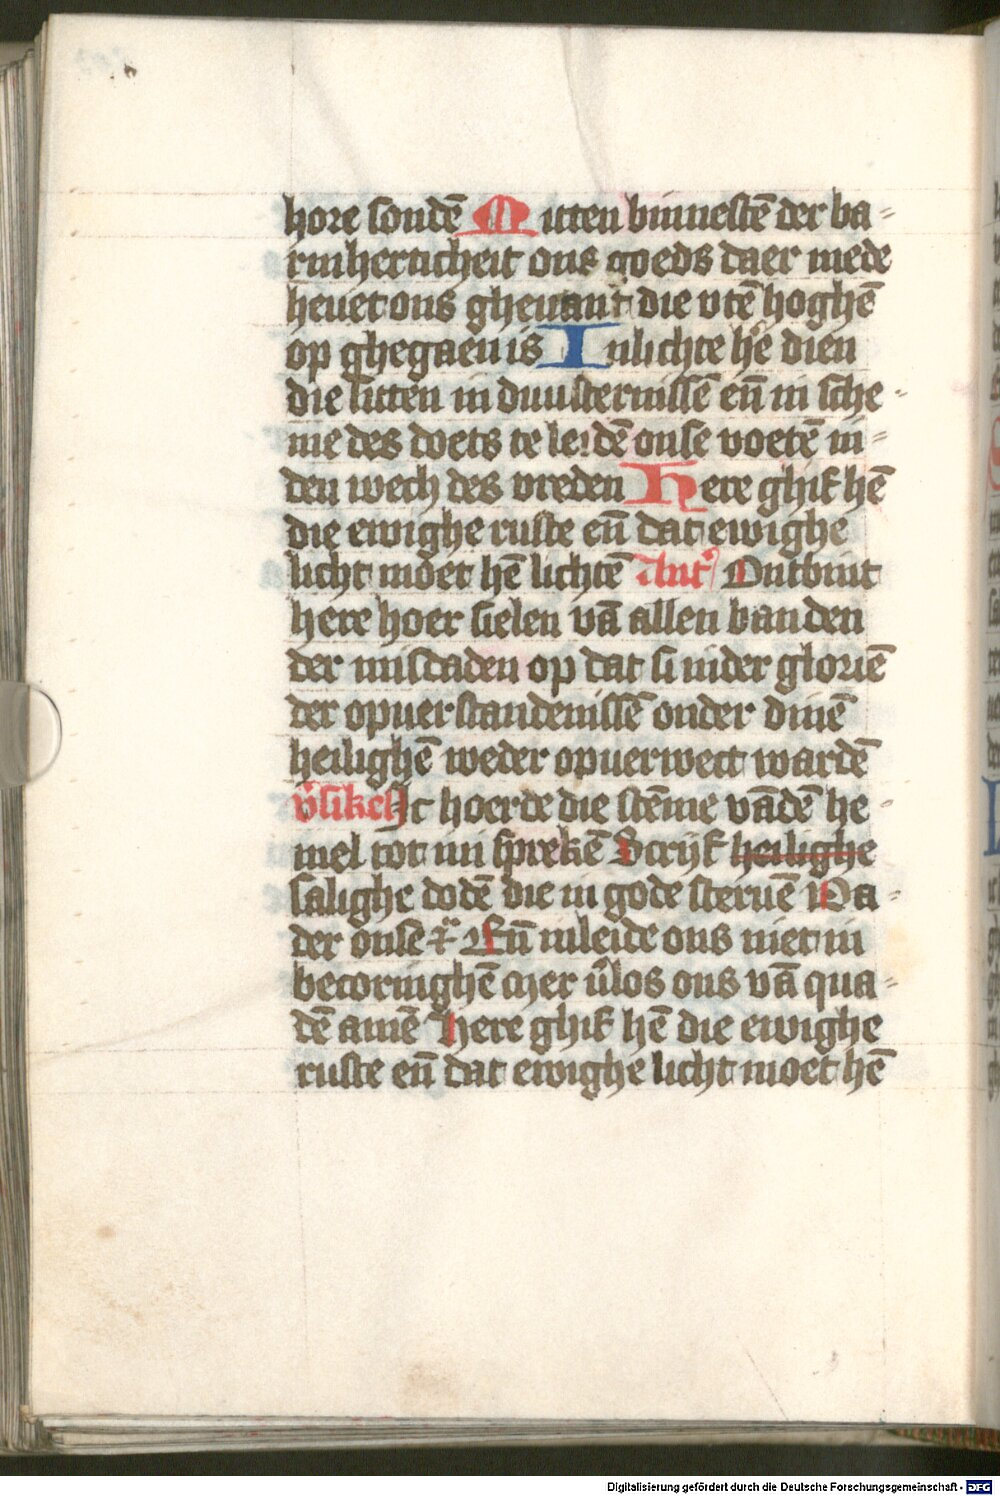 hore sondē Mitten binnestē der ba-
rmherticheit ons goeds daer mede
heuet ons gheuant die vtē hoghē
op ghegaen is Inlichte hē dien
die sitten in duusternissē eñ in sche-
me des doets te leidē onse voetē in-
den wech des vreden Here ghif hē
die ewighe ruste eñ dat ewighe
licht moet hē lichtē Ant' Ontbint
here hoer sielen vā allen banden
der misdaden op dat si in der gloriē
der opuerstandenissē onder dinē
heilighē weder opuerwect wardē
v̓sikel Ic hoerde die stēme vādē he
mel tot mi sprekē Scrijf heilighe
salighe dodē die in gode steruē Va-
der onse ⁊c Eñ inleide ons niet in
becoringhē mer v̓los ons vā qua-
dē amē Here ghif hē die ewighe
ruste eñ dat ewighe licht moet hē
Digitalisierung gefördert durch die Deutsche Forschungsgemeinschaft - DFG